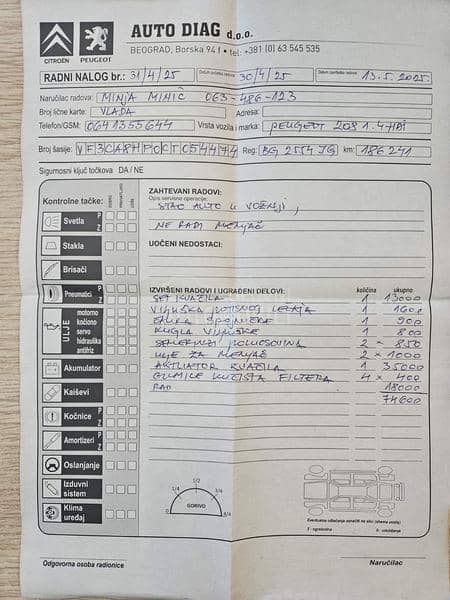 AUTO DIAG d.o.o.
BEOGRAD, Borska 94 f • tel: +381 (0) 63 545 535
CITROËN PEUGEOT
RADNI NALOG br.: 31/4/25 Datum početka radova: 30/4/25 13.5.2025.
Naručilac radova: MINJA MINIĆ 063-486-123
Broj lične karte: VLADA Adresa:
Telefon/GSM: 0641355644 Vrsta vozila i marka: PEUGEOT 208 1.4 HDI
Broj šasije: VF3CA8HP0CT054474 Reg: BG 2554 JG km: 186241
Sigurnosni ključ točkova DA / NE
Kontrolne tačke:
ZAHTEVANI RADOVI:
Opis servisne operacije:
STAO AUTO U VOŽNJI,
NE RADI MENJAČ
UOČENI NEDOSTACI:
Svetla P Z
Stakla
Brisači
Pneumatici P Z
ULJE
motorno
kočiono
servo
hidraulika
antifriz
Akumulator
Kaiševi
Kočnice P Z
Amortizeri P Z
Oslanjanje
Izduvni sistem
Klima uređaj
IZVRŠENI RADOVI I UGRAĐENI DELOVI: količina ukupno
SET KVAČILA 1 13000
VILJUŠKA POTISNOG LEŽAJA 1 1600
1 900
KUGLA VILJUŠKE 1 800
SEMERINZI POLUOSOVINA 2 × 850
ULJE ZA MENJAČ 2 × 1000
AKTUATOR KVAČILA 1 35000
GUMICE KUĆIŠTA FILTERA 4 × 400
RAD 18000
74600
0 1/4 1/2 3/4 4/4
GORIVO
Odgovorna osoba radionice
Naručilac